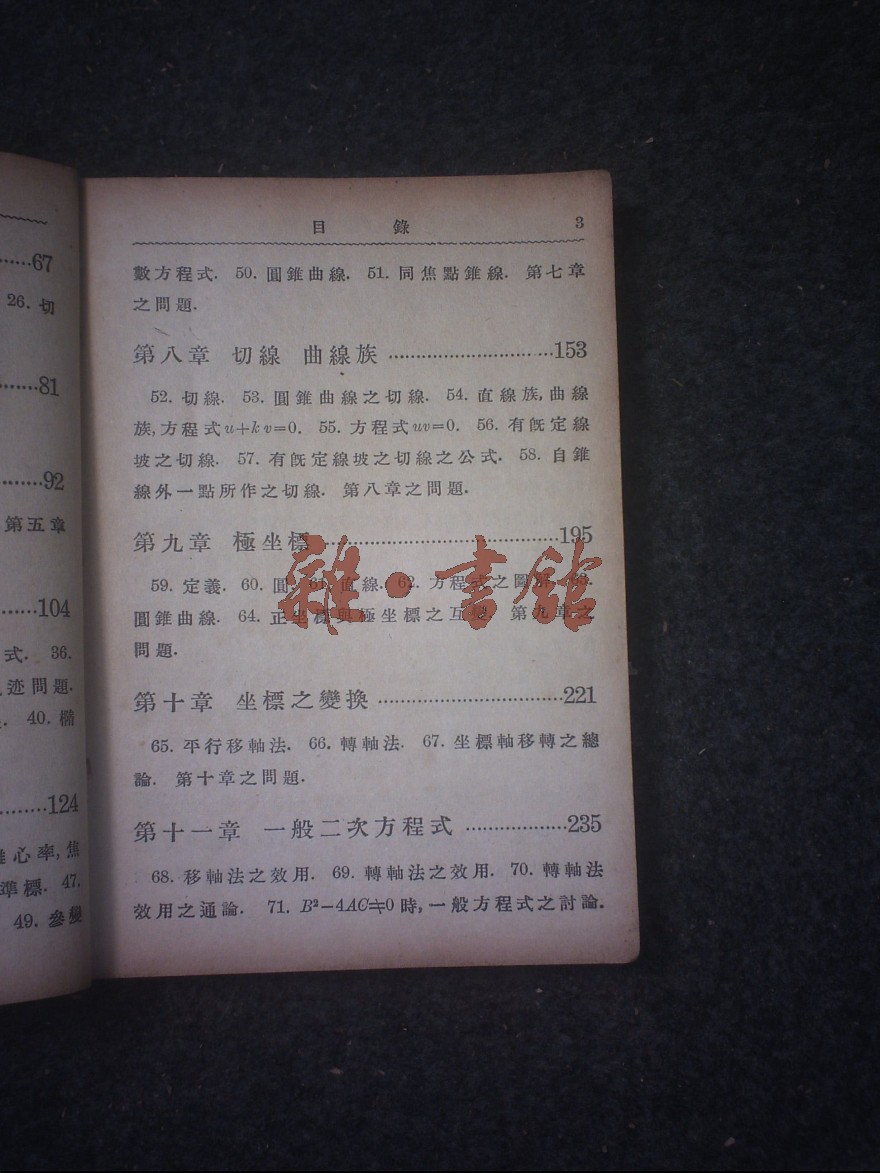 67
26. 切
81
92
第五章
104
式. 36.
迹問題.
40. 橢
124
心率,焦
準標. 47.
49. 參變
目 錄 3
數方程式. 50. 圓錐曲線. 51. 同焦點錐線. 第七章
之問題.
第八章 切線 曲線族 ………………………153
52. 切線. 53. 圓錐曲線之切線. 54. 直線族,曲線
族,方程式u+kv=0. 55. 方程式uv=0. 56. 有旣定線
坡之切線. 57. 有旣定線坡之切線之公式. 58. 自錐
線外一點所作之切線. 第八章之問題.
第九章 極坐標 ………………………195
59. 定義. 60. 圓. 61. 直線. 62. 方程式之圖解. 63.
圓錐曲線. 64. 正坐標與極坐標之互變. 第九章之
問題.
雜·書館
第十章 坐標之變換 ………………………221
65. 平行移軸法. 66. 轉軸法. 67. 坐標軸移轉之總
論. 第十章之問題.
第十一章 一般二次方程式 ………………235
68. 移軸法之效用. 69. 轉軸法之效用. 70. 轉軸法
效用之通論. 71. B²−4AC≠0時,一般方程式之討論.